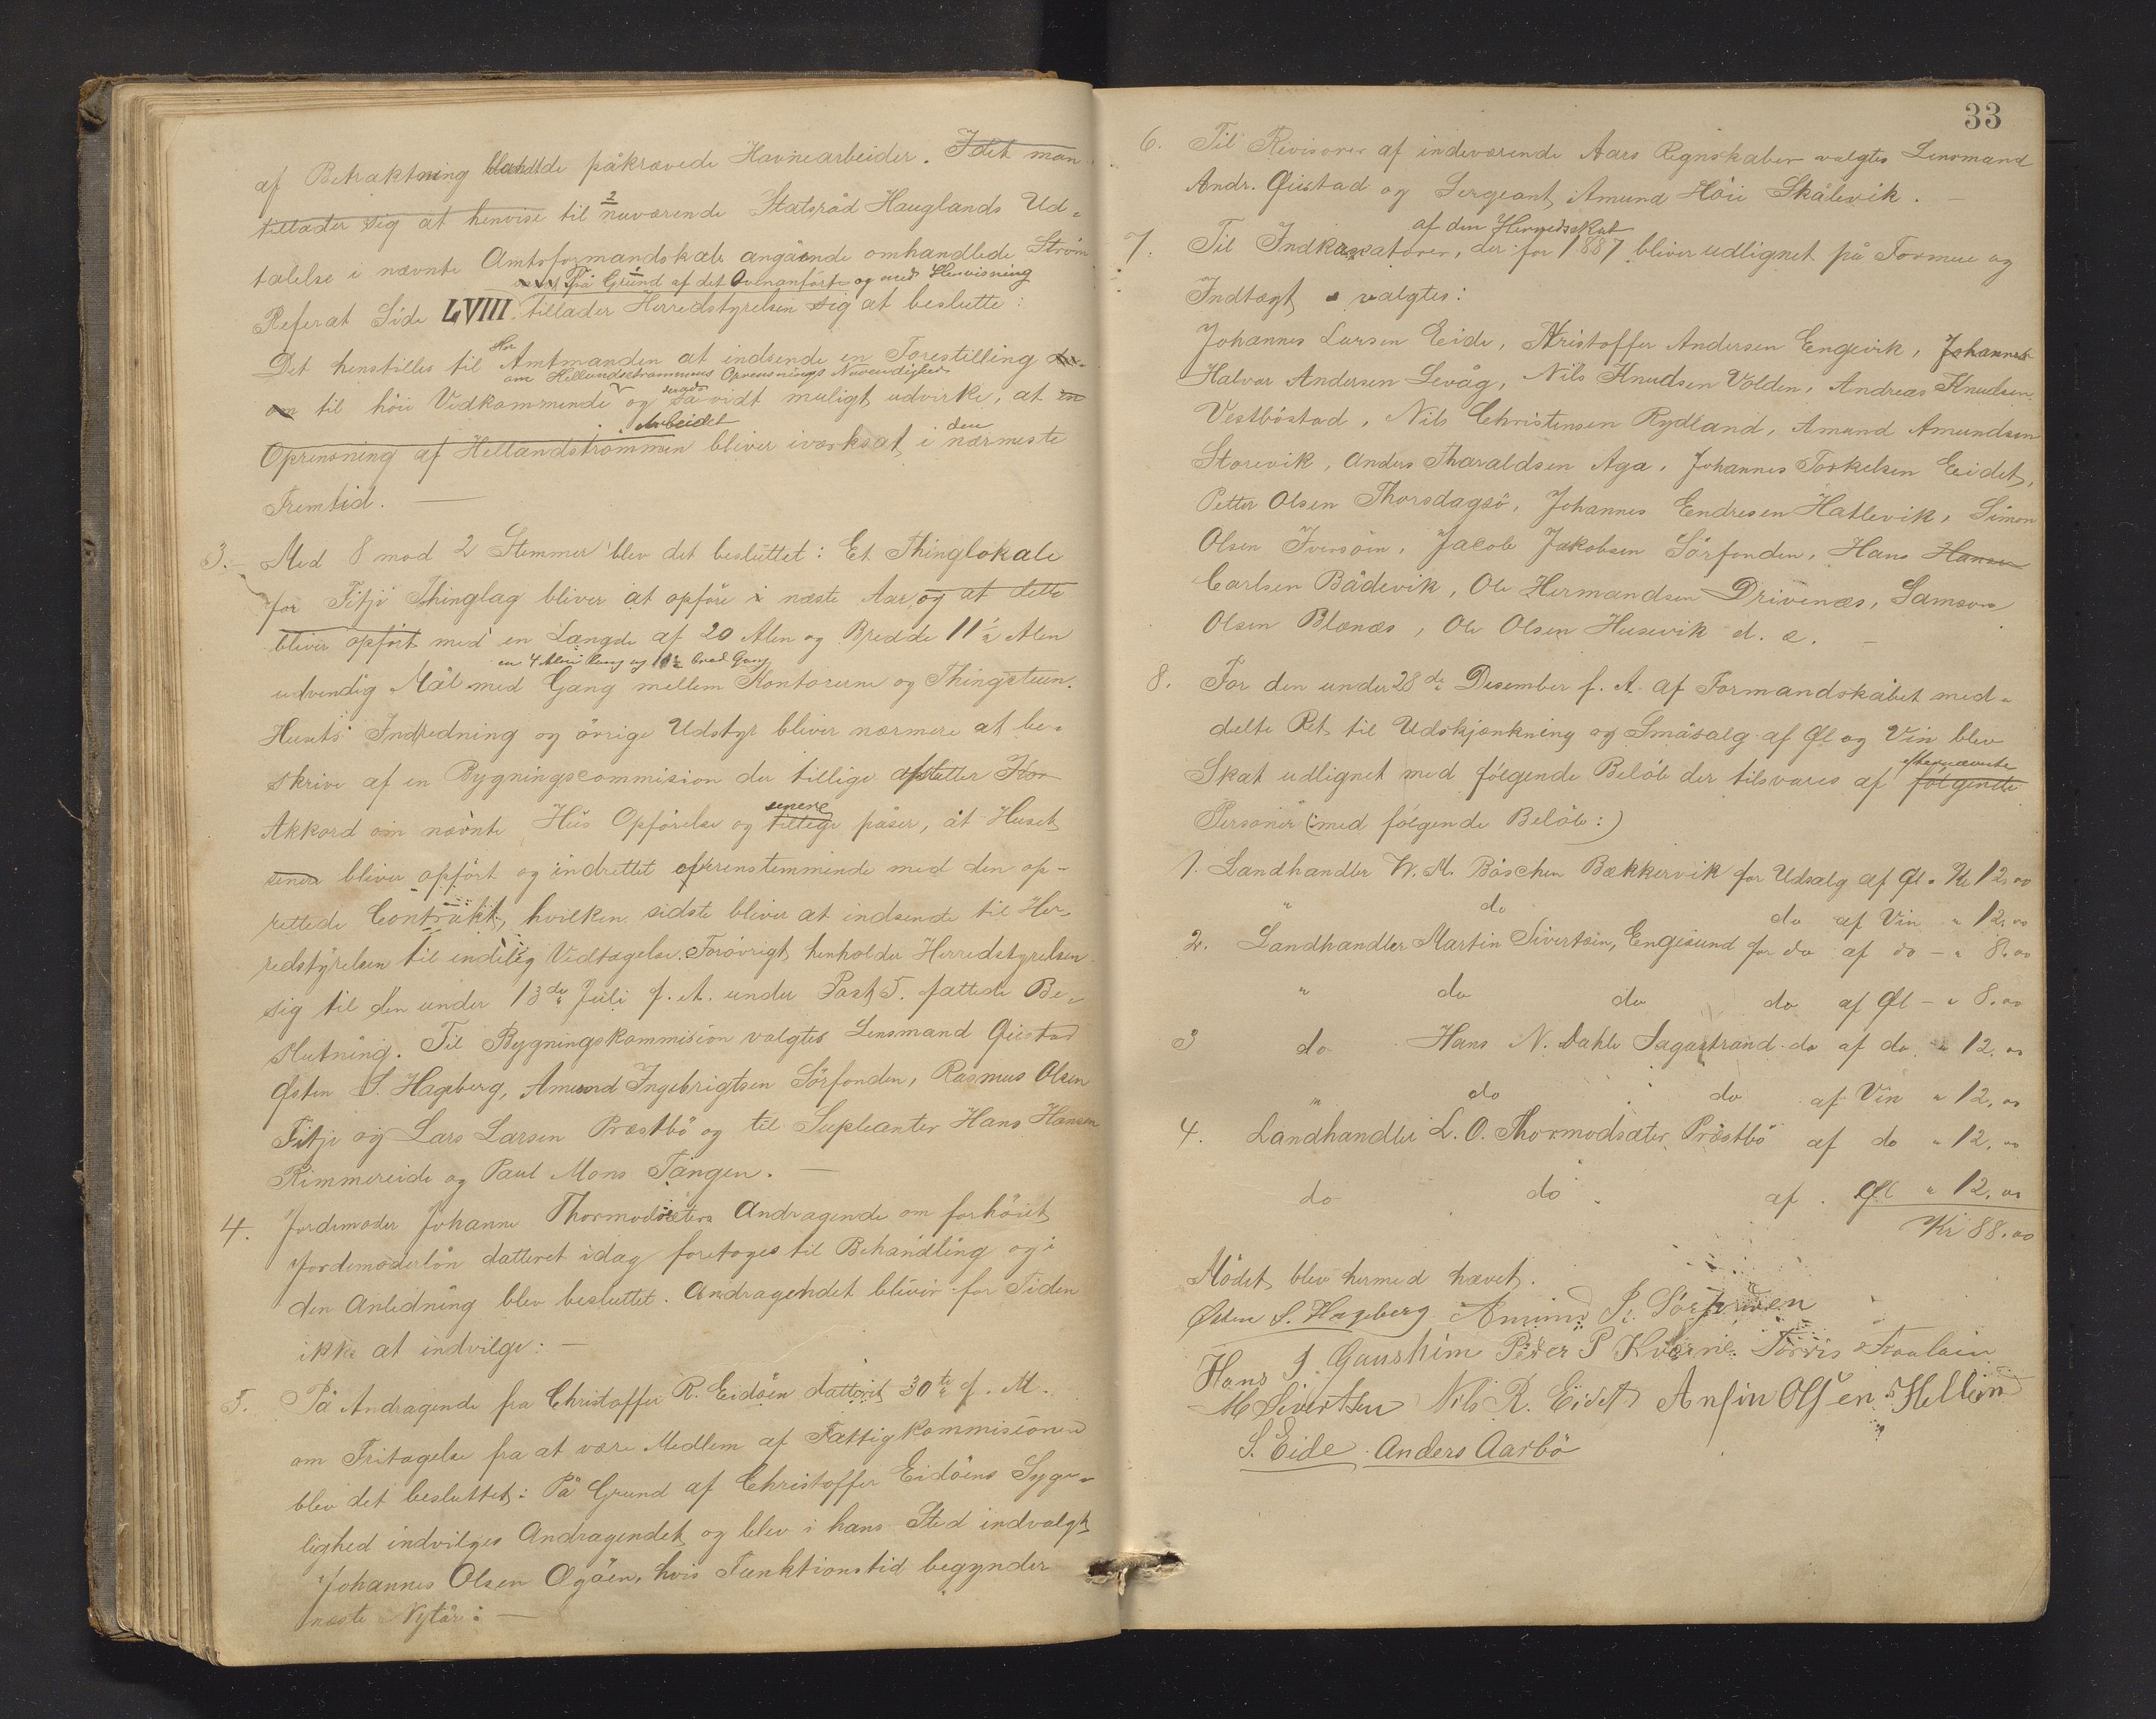 af Betraktning blandt de påkrævede Havnearbeider. Idet man
tillader sig at henvise til nuværende Statsråd Hauglands Ud-
talelse i nævnte Amtsformandskab angående omhandlede Ström
På Grund af det Ovenanförte og med Henvisning
Referat Side LVIII tillader Herredstyrelsen sig at beslutte:
Det henstilles til Hr Amtmanden at indsende en Forestilling
om Hellandströmmens Oprensnings Nøvendighed
om til höie Vedkommende og såvidt muligt udvirke, at en
Arbeidet den
Oprensning af Hellandströmmen bliver iværksat i nærmeste
Fremtid. —
3. — Med 8 mod 2 Stemmer blev det besluttet: Et Thinglokale
for Fitje Thinglag bliver at opføre i næste Aar og at dette
bliver opfört med en Længde af 20 Alen og Bredde 11½ Alen
en 4 Alen lang og 11½ bred Gang
udvendig Mål med Gang mellem Kontorerne og Thingsteuen.
Husets Indredning og övrige Udstyr bliver nærmere at be-
skrive af en Bygningscommision der tillige afslutter Kon
senere
Akkord om nævnte Hus Opförelse og tillige påser, at Huset
senere bliver opfört og indrettet overensstemmende med den op-
rettede Contrakt, hvilken sidste bliver at indsende til Her-
redstyrelsen til endelig Vedtagelse. Forövrigt henholder Herredstyrelsen
sig til den under 13de Juli f. A. under Post 5. fattede Be-
slutning. Til Bygningskommision valgtes Lensmand Øiestad
Østen S. Hageberg, Amund Ingebrigtsen Sörfonden, Rasmus Olsen
Fitje og Lars Larsen Præstbö og til Supleanter Hans Hansen
Rimmereide og Paul Mons Tangen. —
4. Jordemoder Johanne Thormodsæters Andragende om forhöiet
Jordemoderlön datteret idag foretoges til Behandling og i
den Anledning blev besluttet. Andragendet bliver for Tiden
ikke at indvilge: —
5. På Andragende fra Christoffer R. Eidöen datteret 30te f. M.
om Fritagelse fra at være Medlem af Fattigkommisionen
blev det besluttet: På Grund af Christoffer Eidöens Syge-
lighed indvilges Andragendet og blev i hans Sted indvalgt
Johannes Olsen Øgöen, hvis Funktionstid begynder
næste Nytår: —
33
6. Til Revisorer af indeværende Aars Regnskaber valgtes Lensmand
Andr. Øiestad og Sergeant Amund Höie Skålevik. —
af den Herredsskat
7. Til Indkassatorer, der for 1887 bliver udlignet på Formue og
Indtægt valgtes:
Johannes Larsen Eide, Kristoffer Andersen Engevik, Johannes
Halvor Andersen Levåg, Nils Knudsen Volden, Andreas Knudsen
Vestböstad, Nils Christensen Rydland, Amund Amundsen
Storevik, Anders Tharaldsen Aga, Johannes Torkelsen Eidet,
Petter Olsen Thorsdagsö, Johannes Endresen Hatlevik, Simon
Olsen Iversöen, Jacob Jakobsen Sörfonden, Hans Hansen
Carlsen Bådevik, Ole Hermandsen Drivenæs, Samson
Olsen Blænæs, Ole Olsen Husevik d. æ. —
8. For den under 28de Desember f. A. af Formandskabet med-
delte Ret til Udskjænkning og Småsalg af Øl og Vin blev
efternævnte
Skat udlignet med fölgende Belöb der tilsvares af fölgende
Personer (: med fölgende Belöb:)
1. Landhandler W. M. Böschen Bækkervik for Udsalg af Øl. Kr 12,00
" do do af Vin " 12,00
2. Landhandler Martin Sivertsen, Engesund for do af do — " 8,00
" do do do af Øl — " 8,00
3 do Hans N. Dahle Sagastrand do af do " 12,00
" do do af Vin " 12,00
4. Landhandler L. O. Thormodsæter Præstbö af do " 12,00
do do af Øl " 12,00
Kr 88,00
Mödet blev hermed hævet.
Østen S. Hageberg Amund I. Sörfonden
Hans J. Gaushim Peder P Kværne Torris
M Sivertsen Nils R. Eidet Anfin Olsen Hellen
S. Eide Anders Aarbö